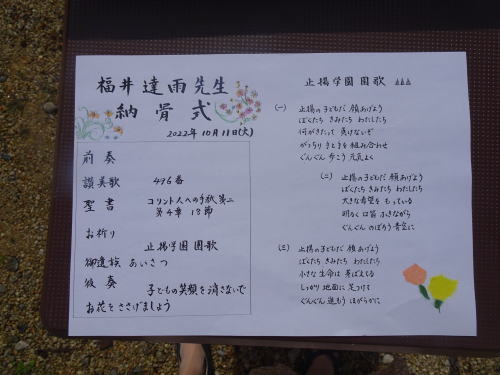 福井達雨先生
納骨式
2022年10月11日(火)
前奏
讃美歌 496番
聖書 コリント人への手紙第二
第4章18節
お祈り
止揚学園 園歌
御遺族 あいさつ
後奏 子どもの笑顔を消さないで
お花をささげましょう
止揚学園 園歌
(一) 止揚の子どもだ 顔あげよう
ぼくたち きみたち わたしたち
何がきたって 負けないぞ
がっちり 手と手を 組み合わせ
ぐんぐん 歩こう 元気よく
(二) 止揚の子どもだ 顔あげよう
ぼくたち きみたち わたしたち
大きな希望を もっている
明るく 口笛 ふきながら
ぐんぐん のぼろう 青空に
(三) 止揚の子どもだ 顔あげよう
ぼくたち きみたち わたしたち
小さな生命は 芽ばえてる
しっかり 地面に 足つけて
ぐんぐん 進もう ほがらかに